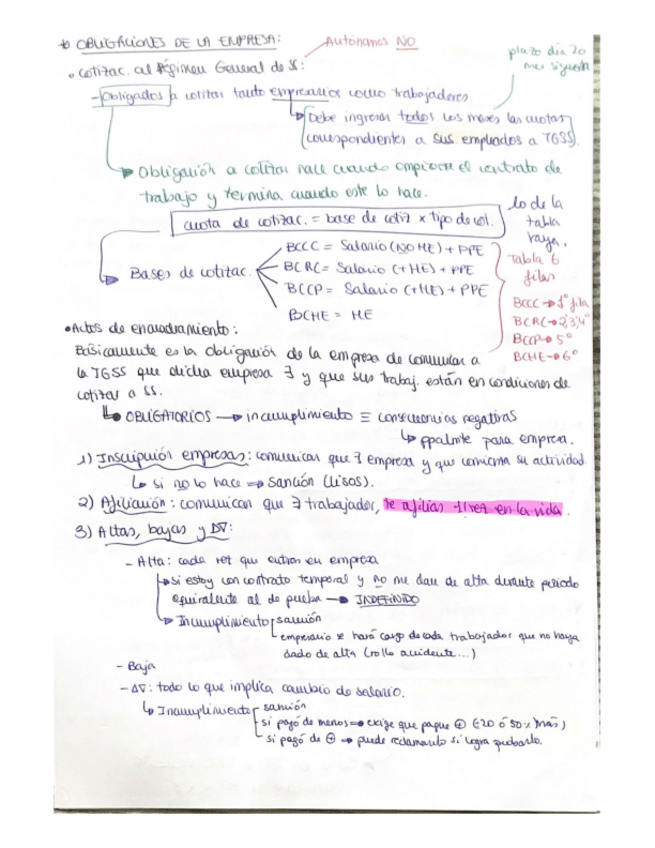 * OBLIGACIONES DE LA EMPRESA:
Autónomos NO
plazo día 20
mes siguiente
• Cotizac. al Régimen General de SS:
- Obligados a cotizar tanto empresarios como trabajadores
Debe ingresar todos los meses las cuotas
correspondientes a sus empleados a TGSS.
Obligación a cotizar nace cuando empieza el contrato de
trabajo y termina cuando este lo hace.
cuota de cotizac. = base de cotiz x tipo de cot.
lo de la
tabla
raya.
Bases de cotizac.
BCCC = Salario (NO HE) + PPE
BCRC = Salario (+HE) + PPE
BCCP = Salario (+HE) + PPE
BCHE = HE
Tabla 6
filas
BCCC → 1º fila
BCRC → 2,3,4º
BCCP → 5º
BCHE → 6º
• Actos de encuadramiento:
Básicamente es la obligación de la empresa de comunicar a
la TGSS que dicha empresa ∃ y que sus trabaj. están en condiciones de
cotizar a SS.
↳ OBLIGATORIOS → incumplimiento ≡ consecuencias negativas
↳ ppalmte para empresa.
1) Inscripción empresas: comunicar que ∃ empresa y que comienza su actividad
↳ si no lo hace ⇒ sanción (Lisos).
2) Afiliación: comunican que ∃ trabajador, te afilias 1 vez en la vida.
3) Altas, bajas y ΔV:
- Alta: cada vez que entran en empresa
si estoy con contrato temporal y no me dan de alta durante periodo
equivalente al de prueba → INDEFINIDO
Incumplimiento
sanción
empresario se hará cargo de cada trabajador que no haya
dado de alta (rollo accidente...)
- Baja
- ΔV: todo lo que implica cambio de salario.
↳ Incumplimiento
sanción
si pagó de menos ⇒ exige que pague ⊕ (20 ó 50% más)
si pagó de ⊕ → puede reclamarlo si logra probarlo.